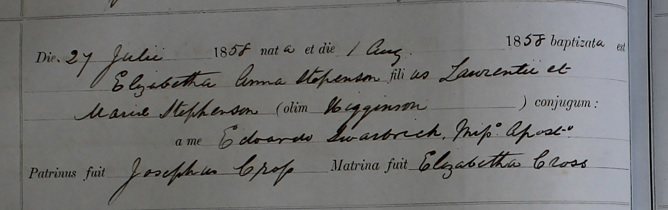 Die. 27 Julii 1858 nata et die 1 Aug. 1858 baptizata est
Elizabetha Anna Stephenson filias Laurentii et
Mariæ Stephenson (olim Higginson ) conjugum:
a me Edoardo Swarbrick, Misso Aposto
Patrinus fuit Josephus Cross Matrina fuit Elizabetha Cross